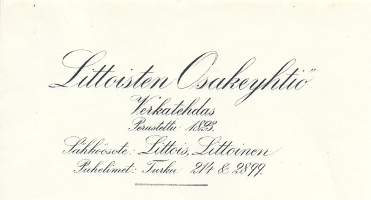 Littoisten Osakeyhtiö
Verkatehdas
Perustettu 1823.
Sähköosote: Littois, Littoinen
Puhelimet: Turku 214 & 2899.